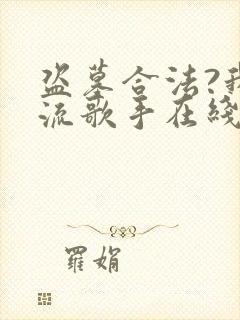 盗墓合法?我
流歌手在綫
羅娟